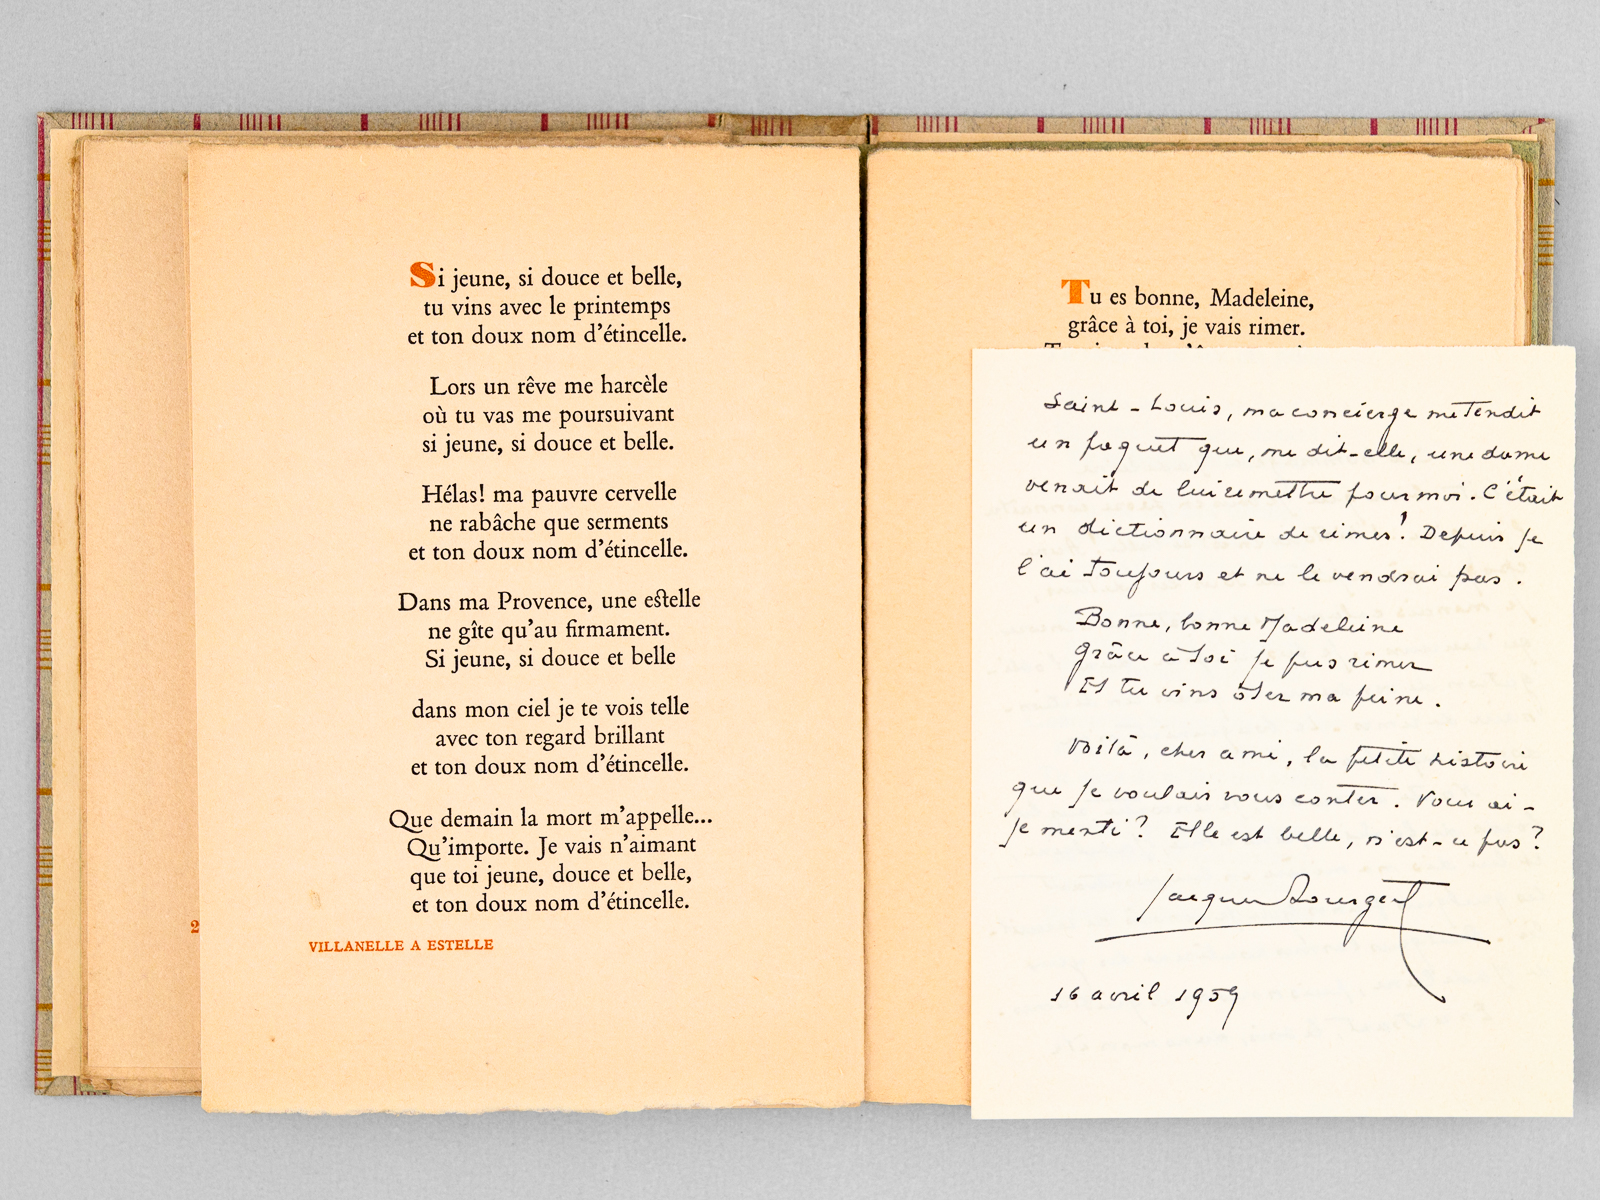 Si jeune, si douce et belle,
tu vins avec le printemps
et ton doux nom d'étincelle.
Lors un rêve me harcèle
où tu vas me poursuivant
si jeune, si douce et belle.
Hélas! ma pauvre cervelle
ne rabâche que serments
et ton doux nom d'étincelle.
Dans ma Provence, une estelle
ne gîte qu'au firmament.
Si jeune, si douce et belle
dans mon ciel je te vois telle
avec ton regard brillant
et ton doux nom d'étincelle.
Que demain la mort m'appelle...
Qu'importe. Je vais n'aimant
que toi jeune, douce et belle,
et ton doux nom d'étincelle.
VILLANELLE A ESTELLE
2
Tu es bonne, Madeleine,
grâce à toi, je vais rimer.
Saint-Louis, ma concierge me tendit
un paquet que, me dit-elle, une dame
venait de lui remettre pour moi. C'était
un dictionnaire de rimes! Depuis je
l'ai toujours et ne le vendrai pas.
Bonne, bonne Madeleine
Grâce à toi je pus rimer
Et tu vins ôter ma peine.
Voilà, cher ami, la petite histoire
que je voulais vous conter. Vous ai-
je menti? Elle est belle, n'est-ce pas?
Jacques Bourgeat
16 avril 1959